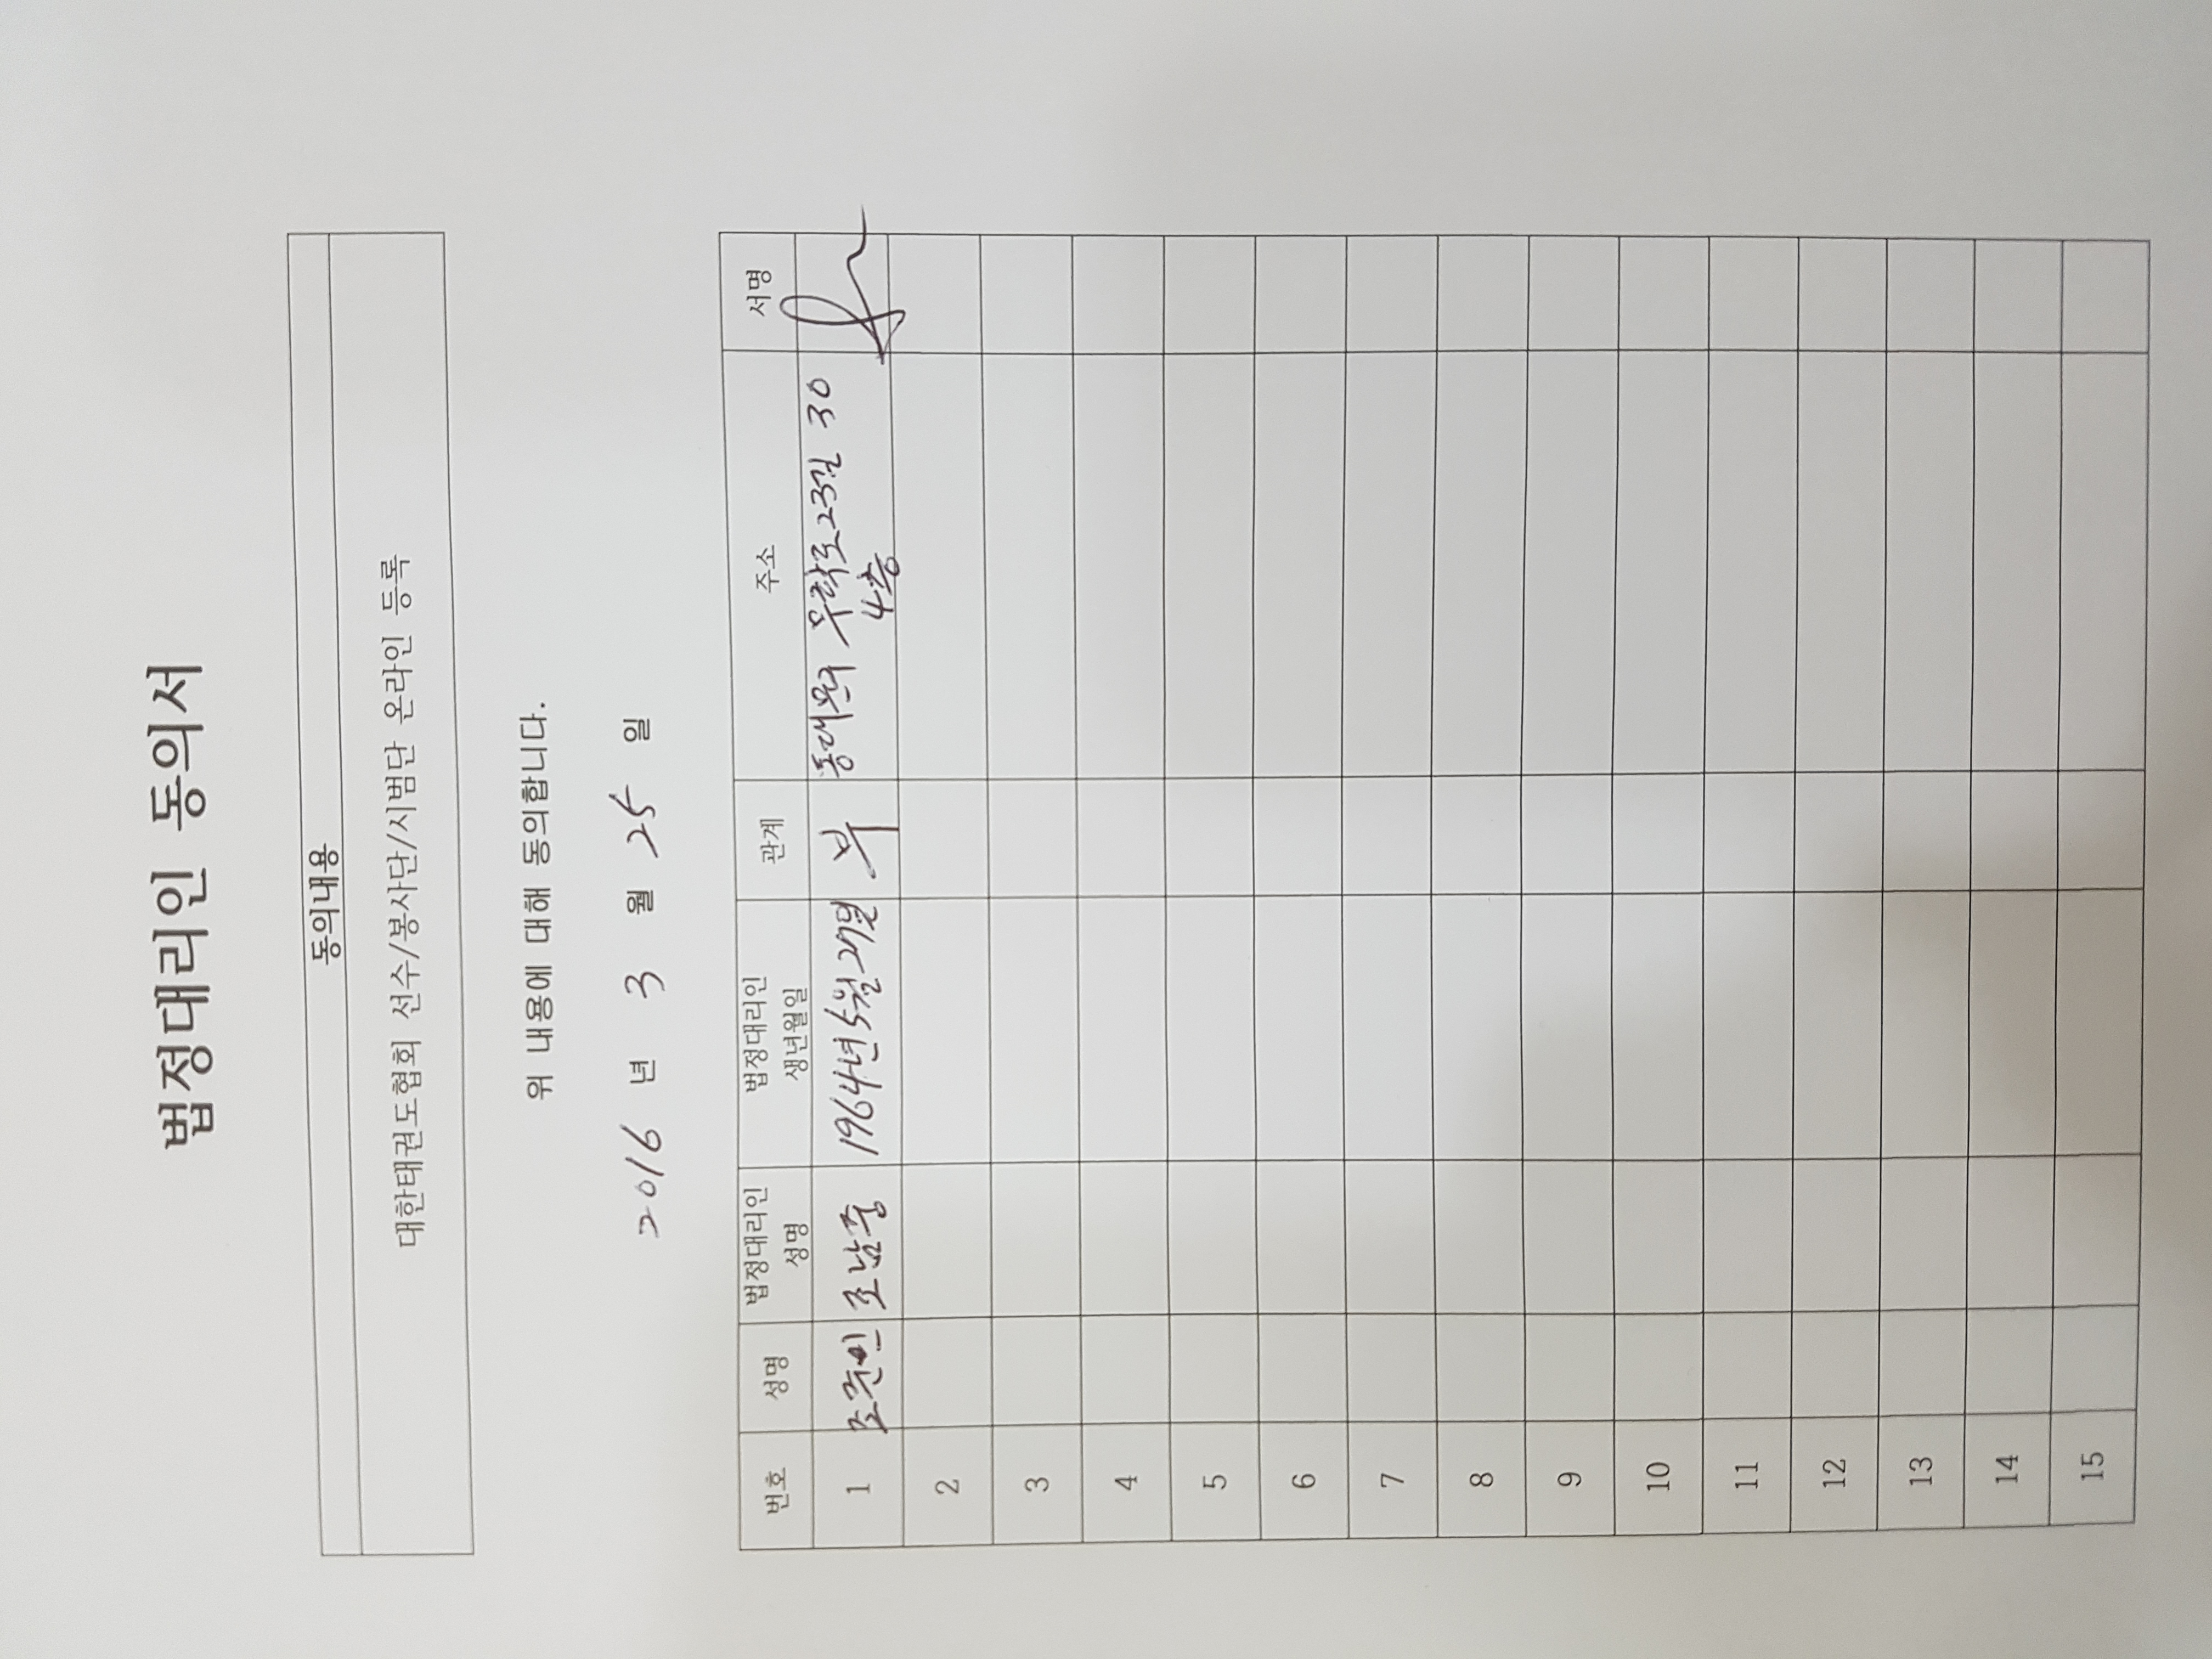 법정대리인 동의서
동의내용
대한태권도협회 선수/봉사단/시범단 온라인 등록
위 내용에 대해 동의합니다.
2016 년 3 월 25 일
번호 성명 법정대리인 성명 법정대리인 생년월일 관계 주소 서명
1 조준인 조남중 1964년 5월 27일 부 동대문구 무학로23길 30
4층
2
3
4
5
6
7
8
9
10
11
12
13
14
15